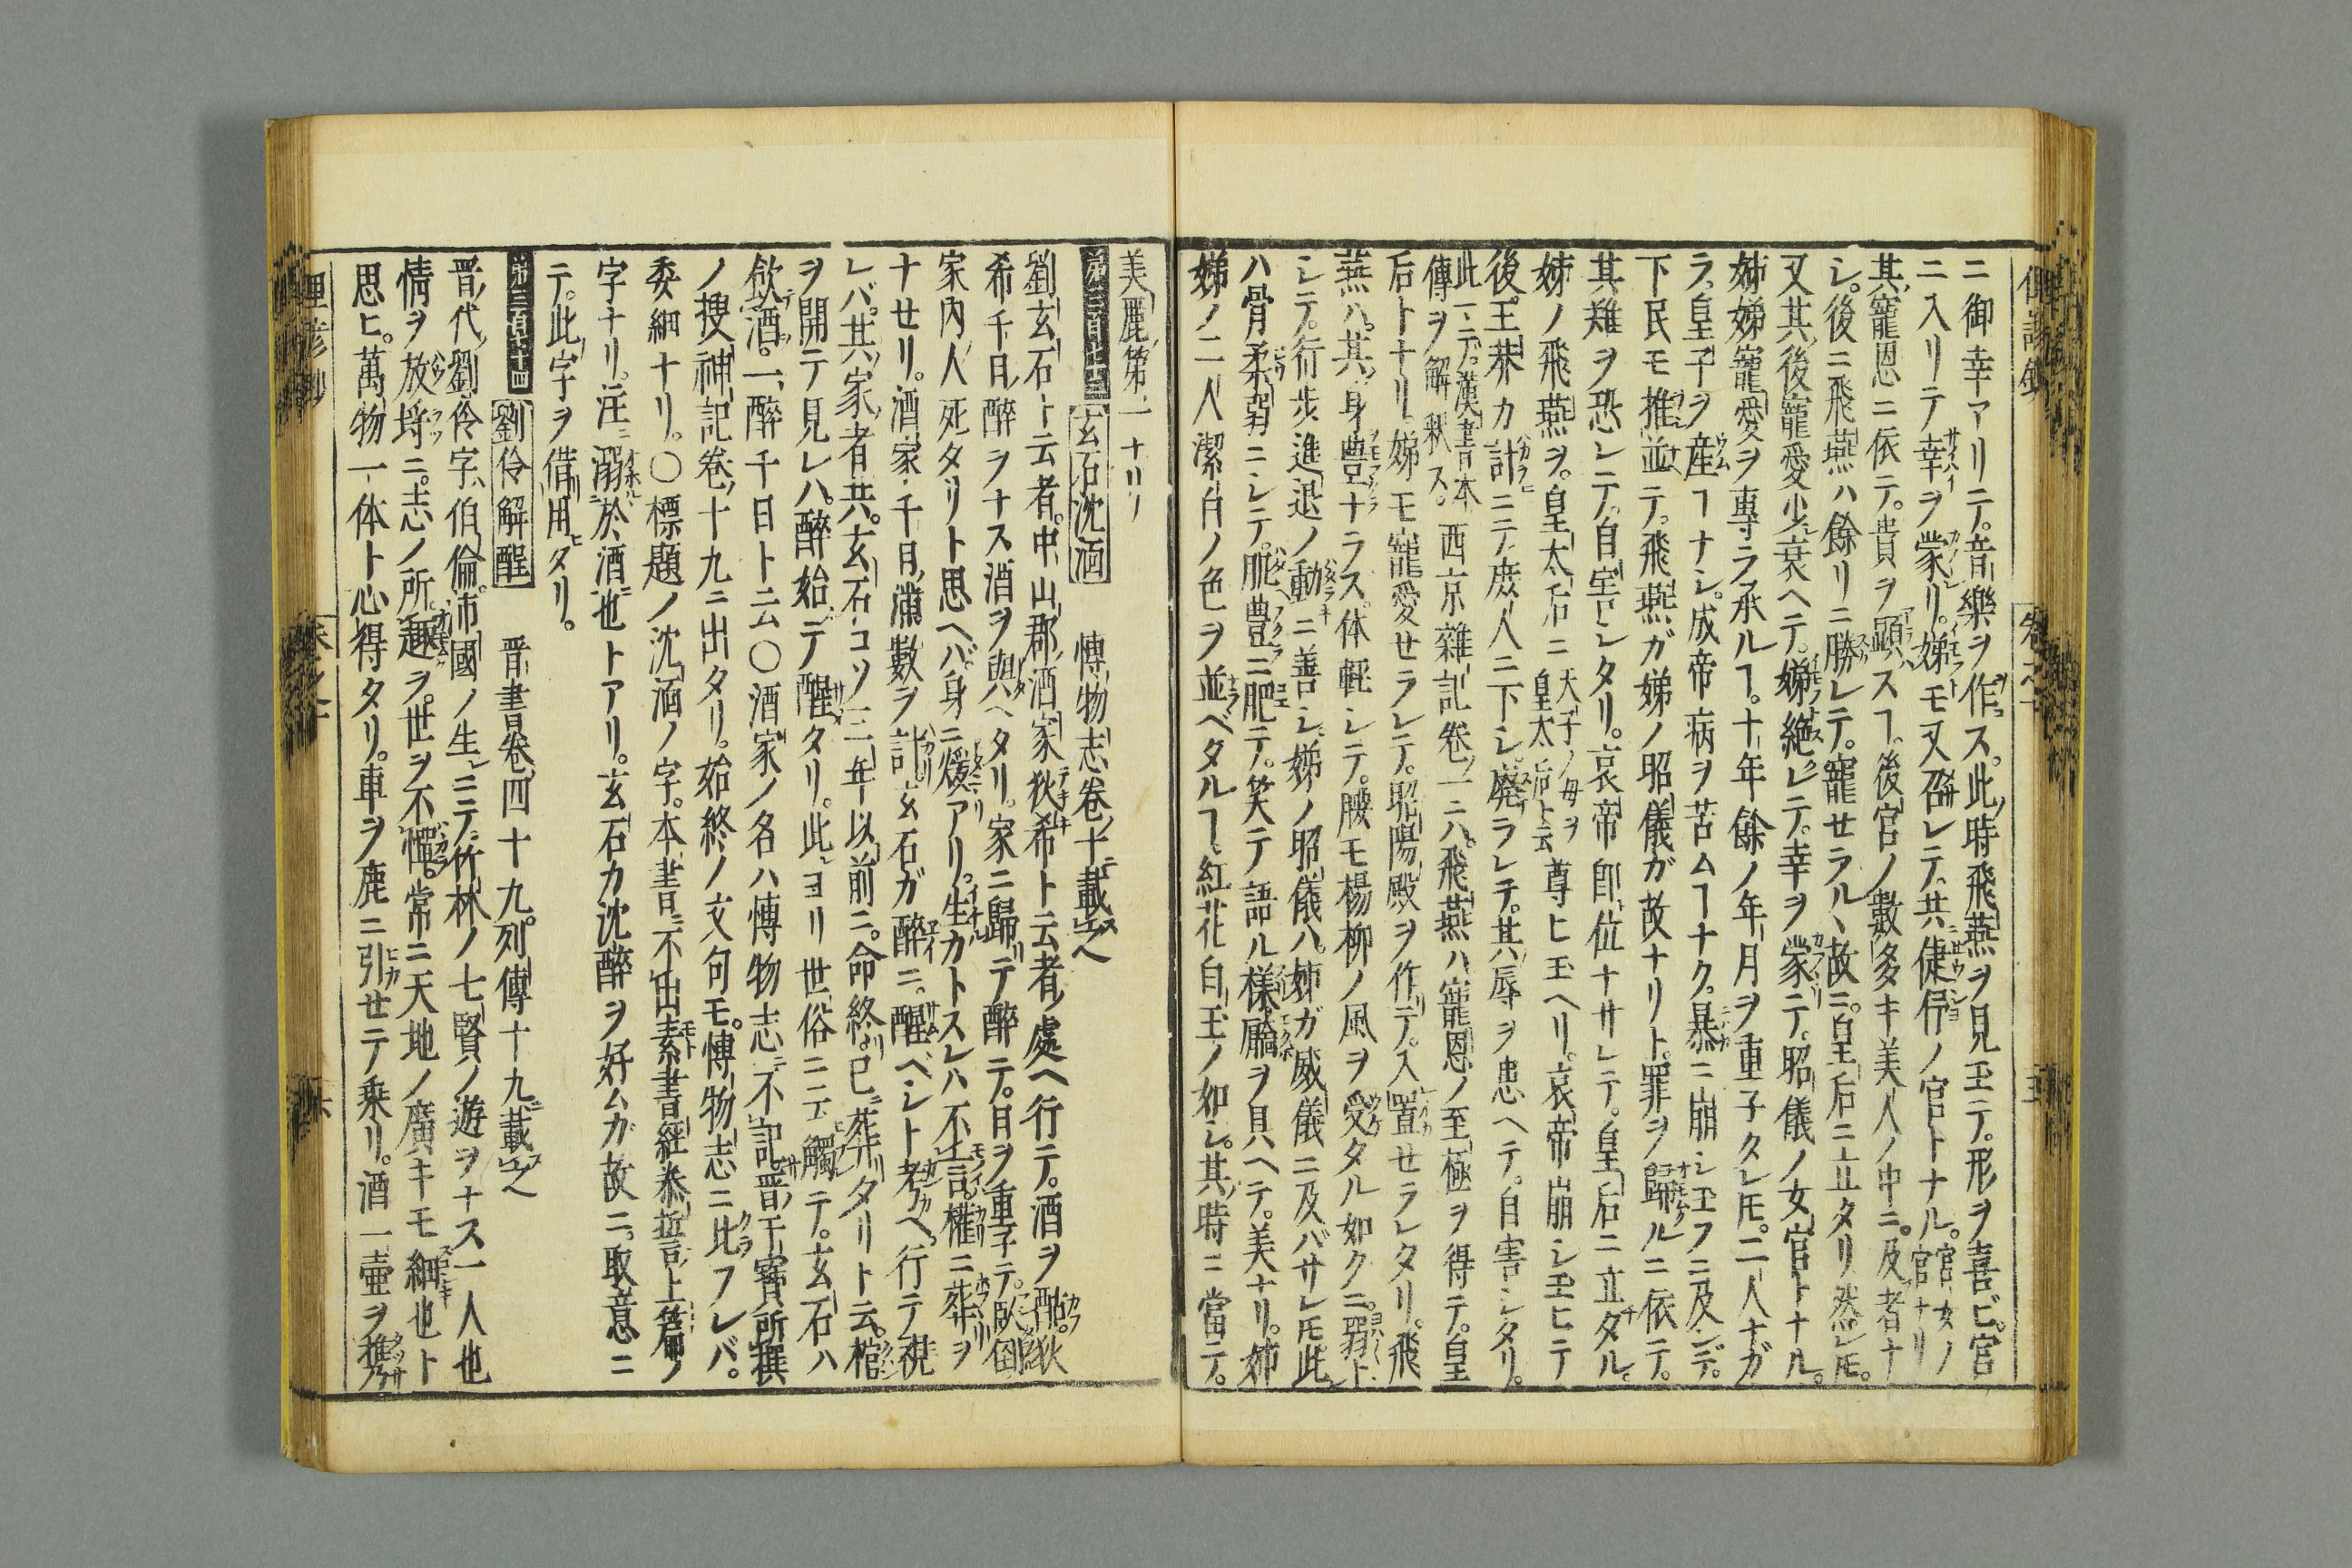 ニ御幸アリテ。音樂ヲ作ス。此時飛燕ヲ見玉テ。形ヲ喜ビ。宮
ニ入リテ幸ヲ蒙リ。娣モ又召レテ。共ニ倢伃ノ官トナル。官女ノ官ナリ
其寵恩ニ依テ。貴ヲ顕スヿ。後宮ノ數多キ美人ノ中ニ。及者ナ
シ。後ニ飛燕ハ餘リニ勝レテ。寵せラルヽ故ニ。皇后ニ立タリ然レ𪜈。
又其後寵愛少シ衰ヘテ。娣絶レテ。幸ヲ蒙テ。昭儀ノ女官トナル。
姉娣寵愛ヲ專ラ承ルヿ。十年餘ノ年月ヲ重子タレ𪜈。二人ナガ
ラ。皇子ヲ産ヿナシ。成帝病ヲ苦ムヿナク。暴ニ崩シ玉フニ及ンデ。
下民モ推並テ。飛燕ガ娣ノ昭儀ガ故ナリト。罪ヲ歸ルニ依テ。
其難ヲ恐レテ。自害シタリ。哀帝即位ナサレテ。皇后ニ立タル。
姉ノ飛燕ヲ。皇太后ニ天子ノ母ヲ皇太后ト云尊ヒ玉ヘリ。哀帝崩シ玉ヒテ
後。王莽カ計ニテ庶人ニ下シ。廢ラレテ。其辱ヲ患ヘテ。自害シタリ。
此一ニテ。漢書本傳ヲ解釈ス。西京雜記巻一ニハ。飛燕ハ寵恩ノ至極ヲ得テ。皇
后トナリ。娣モ寵愛せラレテ。昭陽殿ヲ作リテ。入置せラレタリ。飛
燕ハ。其身豊ナラス。体輕シテ。腰モ楊柳ノ風ヲ受タル如クニ。弱ト
シテ。行歩進退ノ動ニ善シ。娣ノ昭儀ハ。姉ガ威儀ニ及バサレ𪜈。此
ハ骨柔弱ニシテ。肥豊ニ肥テ。笑テ語ル樣ヲ具ヘテ。美ナリ。姉
娣ノ二人潔白ノ色ヲ並ベタルヿ紅花白玉ノ如シ。其時ニ當テ。
美麗第一ナリ
第三百七十三 玄石沈湎 博物志巻ノ十ニ載之
劉玄石ト云者。中山郡ノ酒家狄希ト云者ノ處ヘ行テ。酒ヲ酤。狄
希千日ノ醉ヲナス酒ヲ與ヘタリ。家ニ歸テ醉テ。日ヲ重子テ。臥倒
家内ノ人死タリト思ヘバ。身ニ煖アリ。生カトスレハ不言。權ニ葬ヲ
ナせリ。酒家千日ノ滿數ヲ計。玄石ガ醉ニ。醒ベシト考ヘ。行テ視
レバ。其家ノ者共。玄石コソ三年以前ニ。命終。已葬タリト云。棺
ヲ開テ見レハ。醉始テ醒タリ。此ヨリ世俗ニ云觸テ。玄石ハ
飲酒。一醉千日ト云〇酒家ノ名ハ博物志ニ不記晋ノ干寶所撰
ノ搜神記巻ノ十九ニ出タリ。始終ノ文句モ。博物志ニ比フレバ。
委細ナリ。〇標題ノ沈湎ノ字。本書ニ不出素書經泰誓上篇ノ
字ナリ。注ニ溺於酒也トアリ。玄石カ沈醉ヲ好ムガ故ニ。取意ニ
テ。此字ヲ借用タリ。
第三百七十四 劉伶解酲 晋書巻四十九。列傳十九ニ載之
晋ノ代ノ劉伶字ハ伯倫。沛國ノ生ニテ竹林ノ七賢ノ遊ヲナス一人也
情ヲ放埒ニ。志ノ所趣ヲ。世ヲ不憚。常ニ天地ノ廣キモ細也ト
思ヒ。萬物一体ト心得タリ。車ヲ鹿ニ引せテ乗リ。酒一壷ヲ携